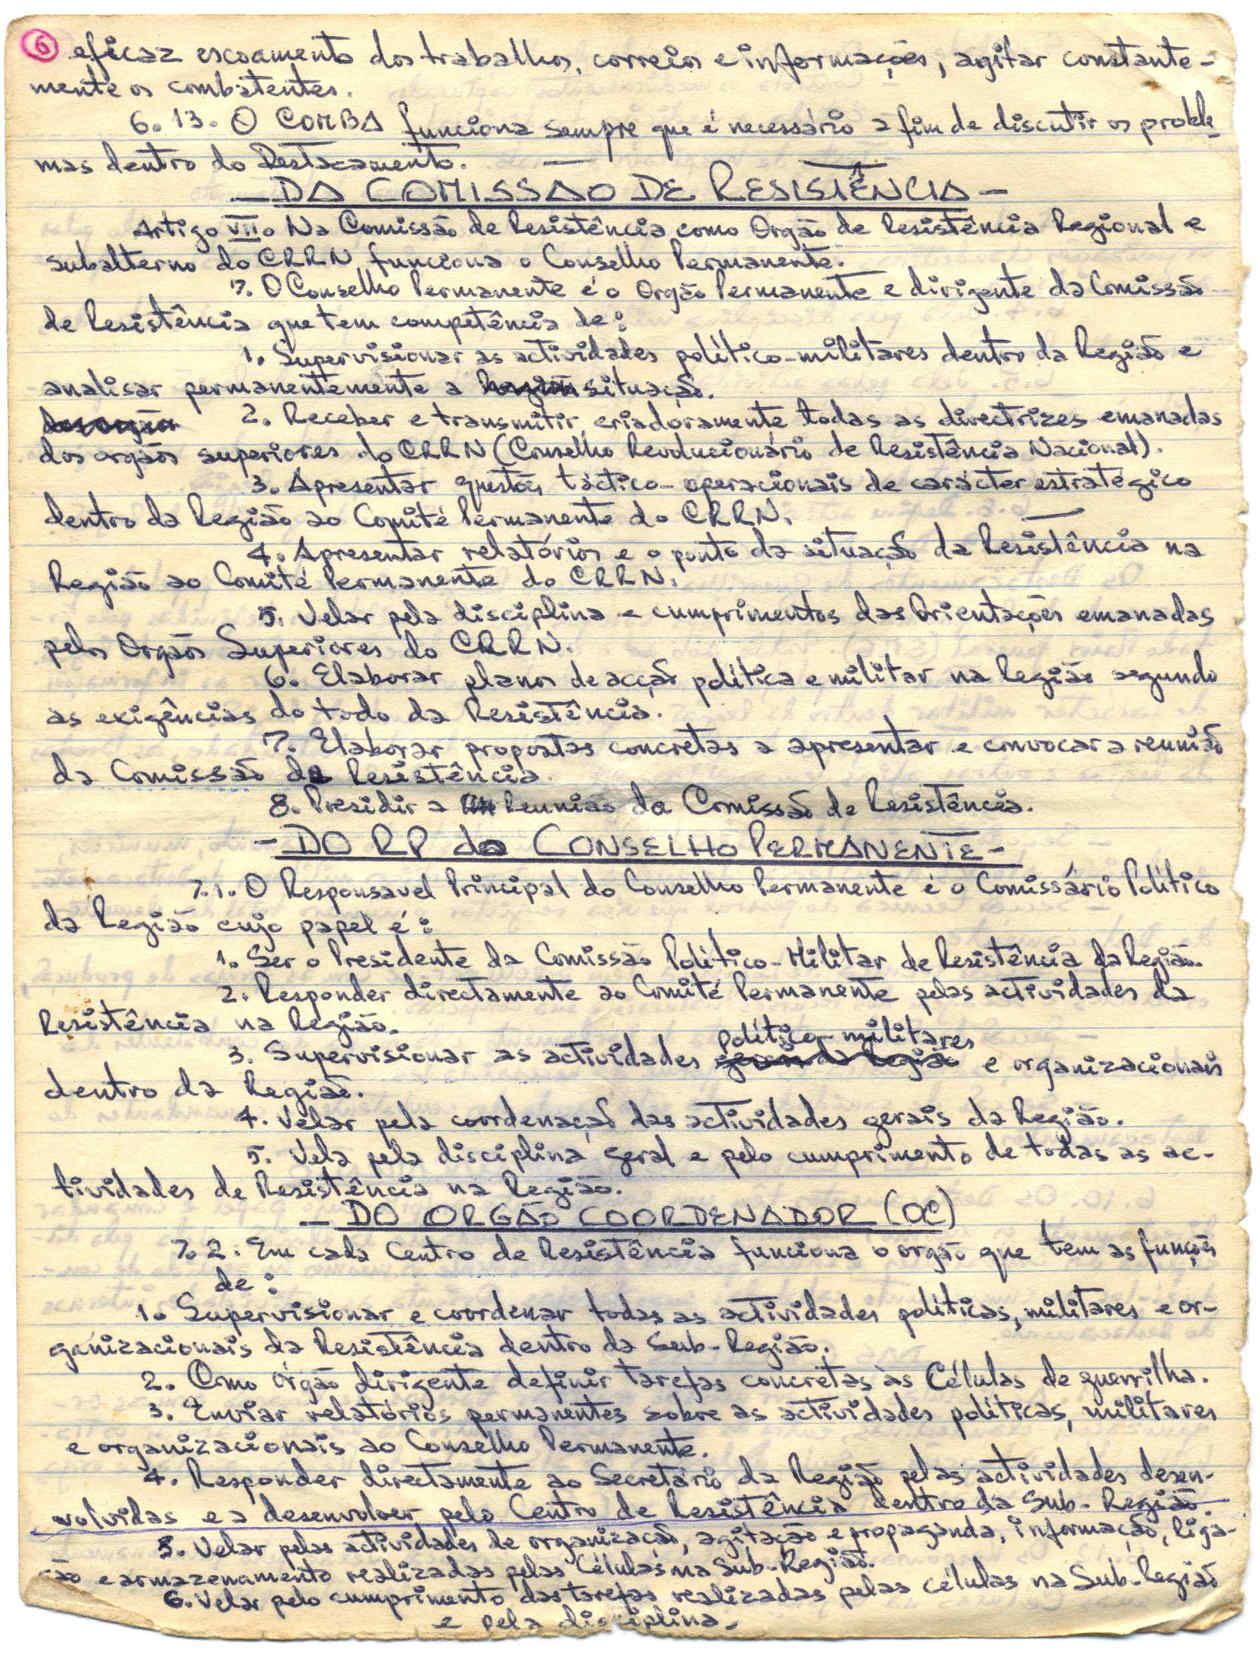 6 eficaz escoamento dos trabalhos, correios e informações, agitar constante-
mente os combatentes.
6.13. O COMBA funciona sempre que é necessário a fim de discutir os proble-
mas dentro do Destacamento.
- DA COMISSÃO DE RESISTÊNCIA -
Artigo VIIo Na Comissão de Resistência como Orgão de Resistência Regional e
subalterno do CRRN funciona o Conselho Permanente.
7. O Conselho Permanente é o Orgão Permanente e dirigente da Comissão
de Resistência que tem competência de:
1. Supervisionar as actividades político-militares dentro da Região e
analisar permanentemente a situação.
2. Receber e transmitir criadoramente todas as directrizes emanadas
dos orgãos superiores do CRRN (Conselho Revolucionário de Resistência Nacional).
3. Apresentar questões táctico-operacionais de carácter estratégico
dentro da Região ao Comité Permanente do CRRN.
4. Apresentar relatórios e o ponto da situação da Resistência na
Região ao Comité Permanente do CRRN.
5. Velar pela disciplina e cumprimentos das Orientações emanadas
pelos Orgãos Superiores do CRRN.
6. Elaborar planos de acção política e militar na Região segundo
as exigências do todo da Resistência.
7. Elaborar propostas concretas a apresentar e convocar a reunião
da Comissão de Resistência.
8. Presidir a Reunião da Comissão de Resistência.
- DO RP do CONSELHO PERMANENTE -
7.1. O Responsavel Principal do Conselho Permanente é o Comissário Político
da Região cujo papel é:
1. Ser o Presidente da Comissão Político-Militar de Resistência da Região.
2. Responder directamente ao Comité Permanente pelas actividades da
Resistência na Região.
3. Supervisionar as actividades político-militares e organizacionais
dentro da Região.
4. Velar pela coordenação das actividades gerais da Região.
5. Vela pela disciplina geral e pelo cumprimento de todas as ac-
tividades de Resistência na Região.
- DO ORGÃO COORDENADOR (OC)
7.2. Em cada Centro de Resistência funciona o orgão que tem as funções
de:
1. Supervisionar e coordenar todas as actividades políticas, militares e or-
ganizacionais da Resistência dentro da Sub-Região.
2. Como órgão dirigente definir tarefas concretas às Células de guerrilha.
3. Enviar relatórios permanentes sobre as actividades políticas, militares
e organizacionais ao Conselho Permanente.
4. Responder directamente ao Secretário da Região pelas actividades desen-
volvidas e a desenvolver pelo Centro de Resistência dentro da Sub-Região.
5. Velar pelas actividades de organização, agitação e propaganda, informação, liga-
ção e armazenamento realizadas pelas Células na Sub-Região.
6. Velar pelo cumprimento das tarefas realizadas pelas células na Sub-Região
e pela disciplina.